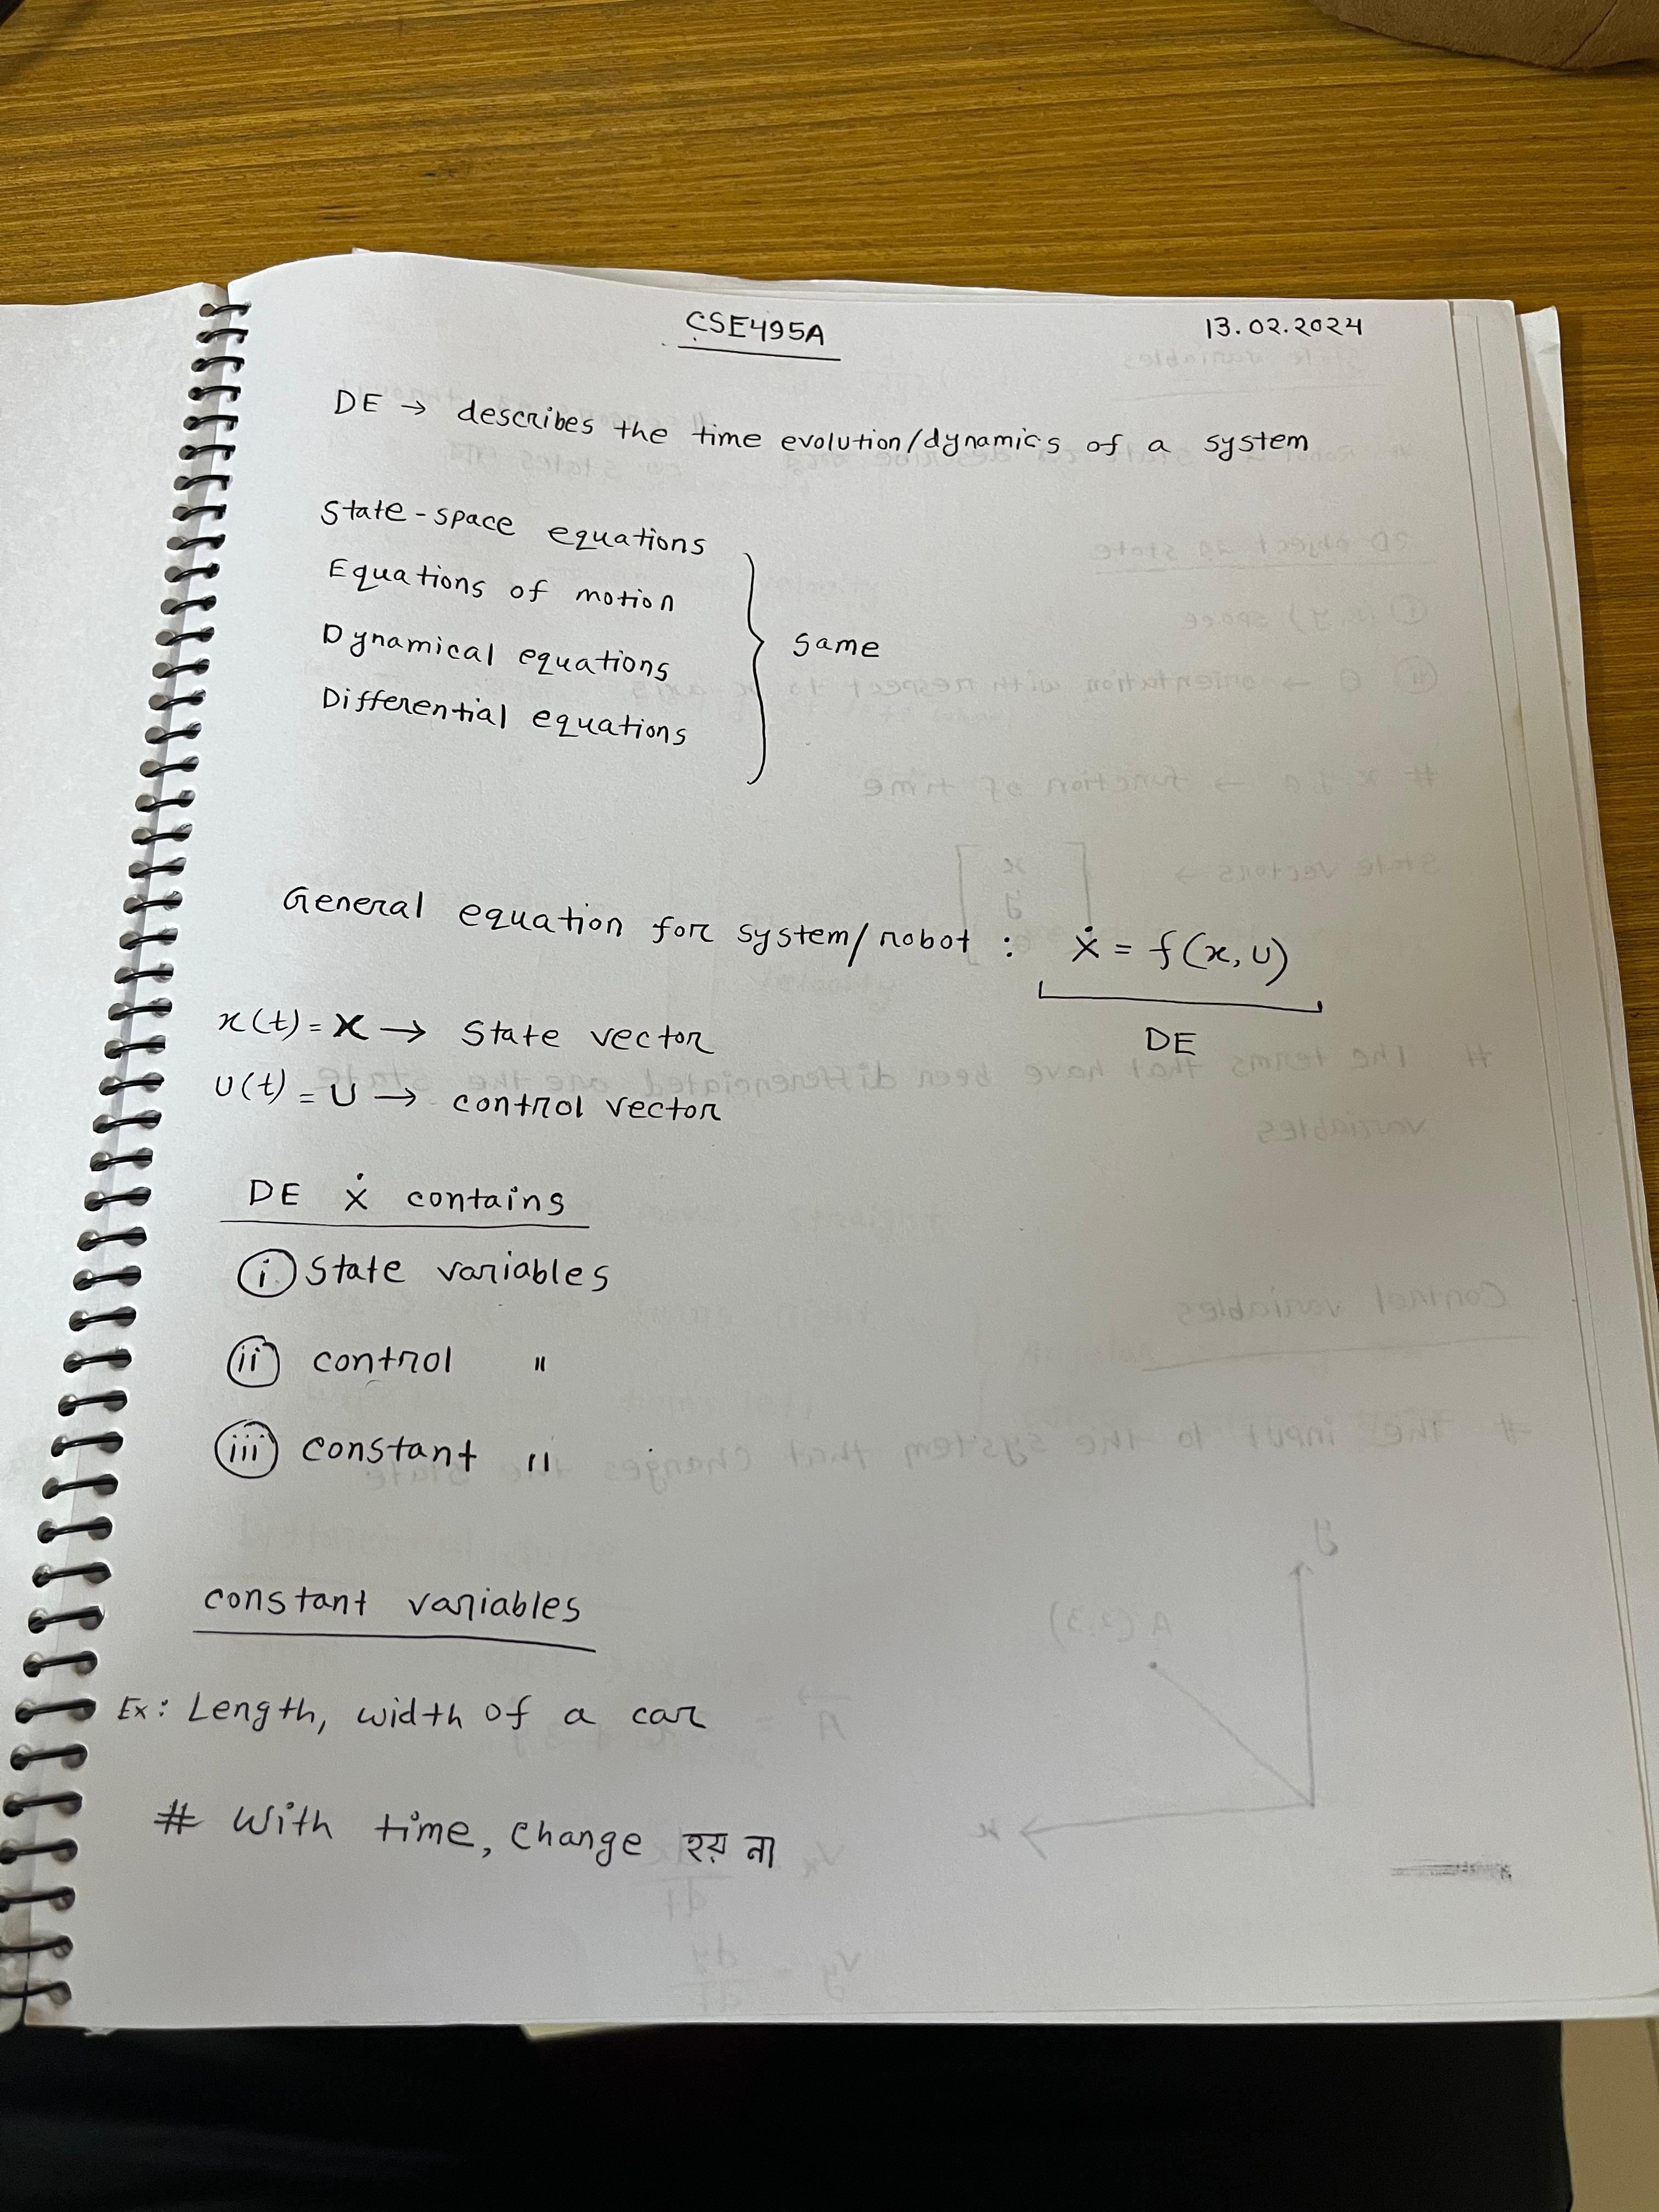 CSE495A
13.02.2024
DE → describes the time evolution/dynamics of a system
State-space equations
Equations of motion
Dynamical equations
Differential equations
same
General equation for system/robot : ẋ = f(x, u)
DE
x(t) = x → State vector
U(t) = U → control vector
DE ẋ contains
(i) State variables
(ii) control "
(iii) constant "
constant variables
Ex: Length, width of a car
# With time, change হয় না